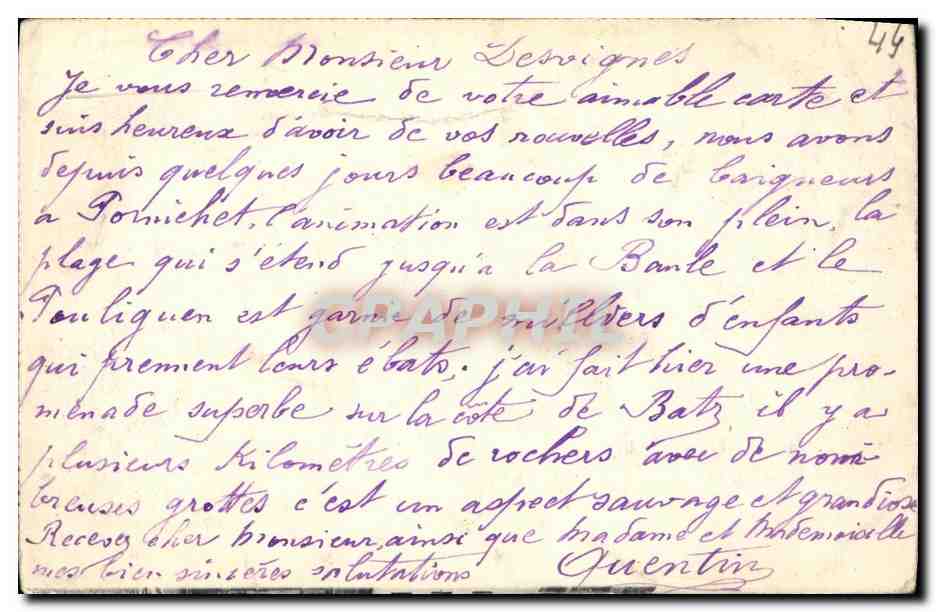 44
Cher Monsieur Desvignes
Je vous remercie de votre aimable carte et
suis heureux d'avoir de vos nouvelles, nous avons
depuis quelques jours beaucoup de baigneurs
a Pornichet, l'animation est dans son plein, la
plage qui s'étend jusqu'a la Baule et le
Pouliguen est garnie de milliers d'enfants
qui prennent leurs ébats, j'ai fait hier une pro-
menade superbe sur la côte de Batz il y a
plusieurs Kilomètres de rochers avec de nom-
breuses grottes c'est un aspect sauvage et grandiose
Recevez cher Monsieur, ainsi que Madame et Mademoiselle
mes bien sincères salutations Quentin
CPAPHIL